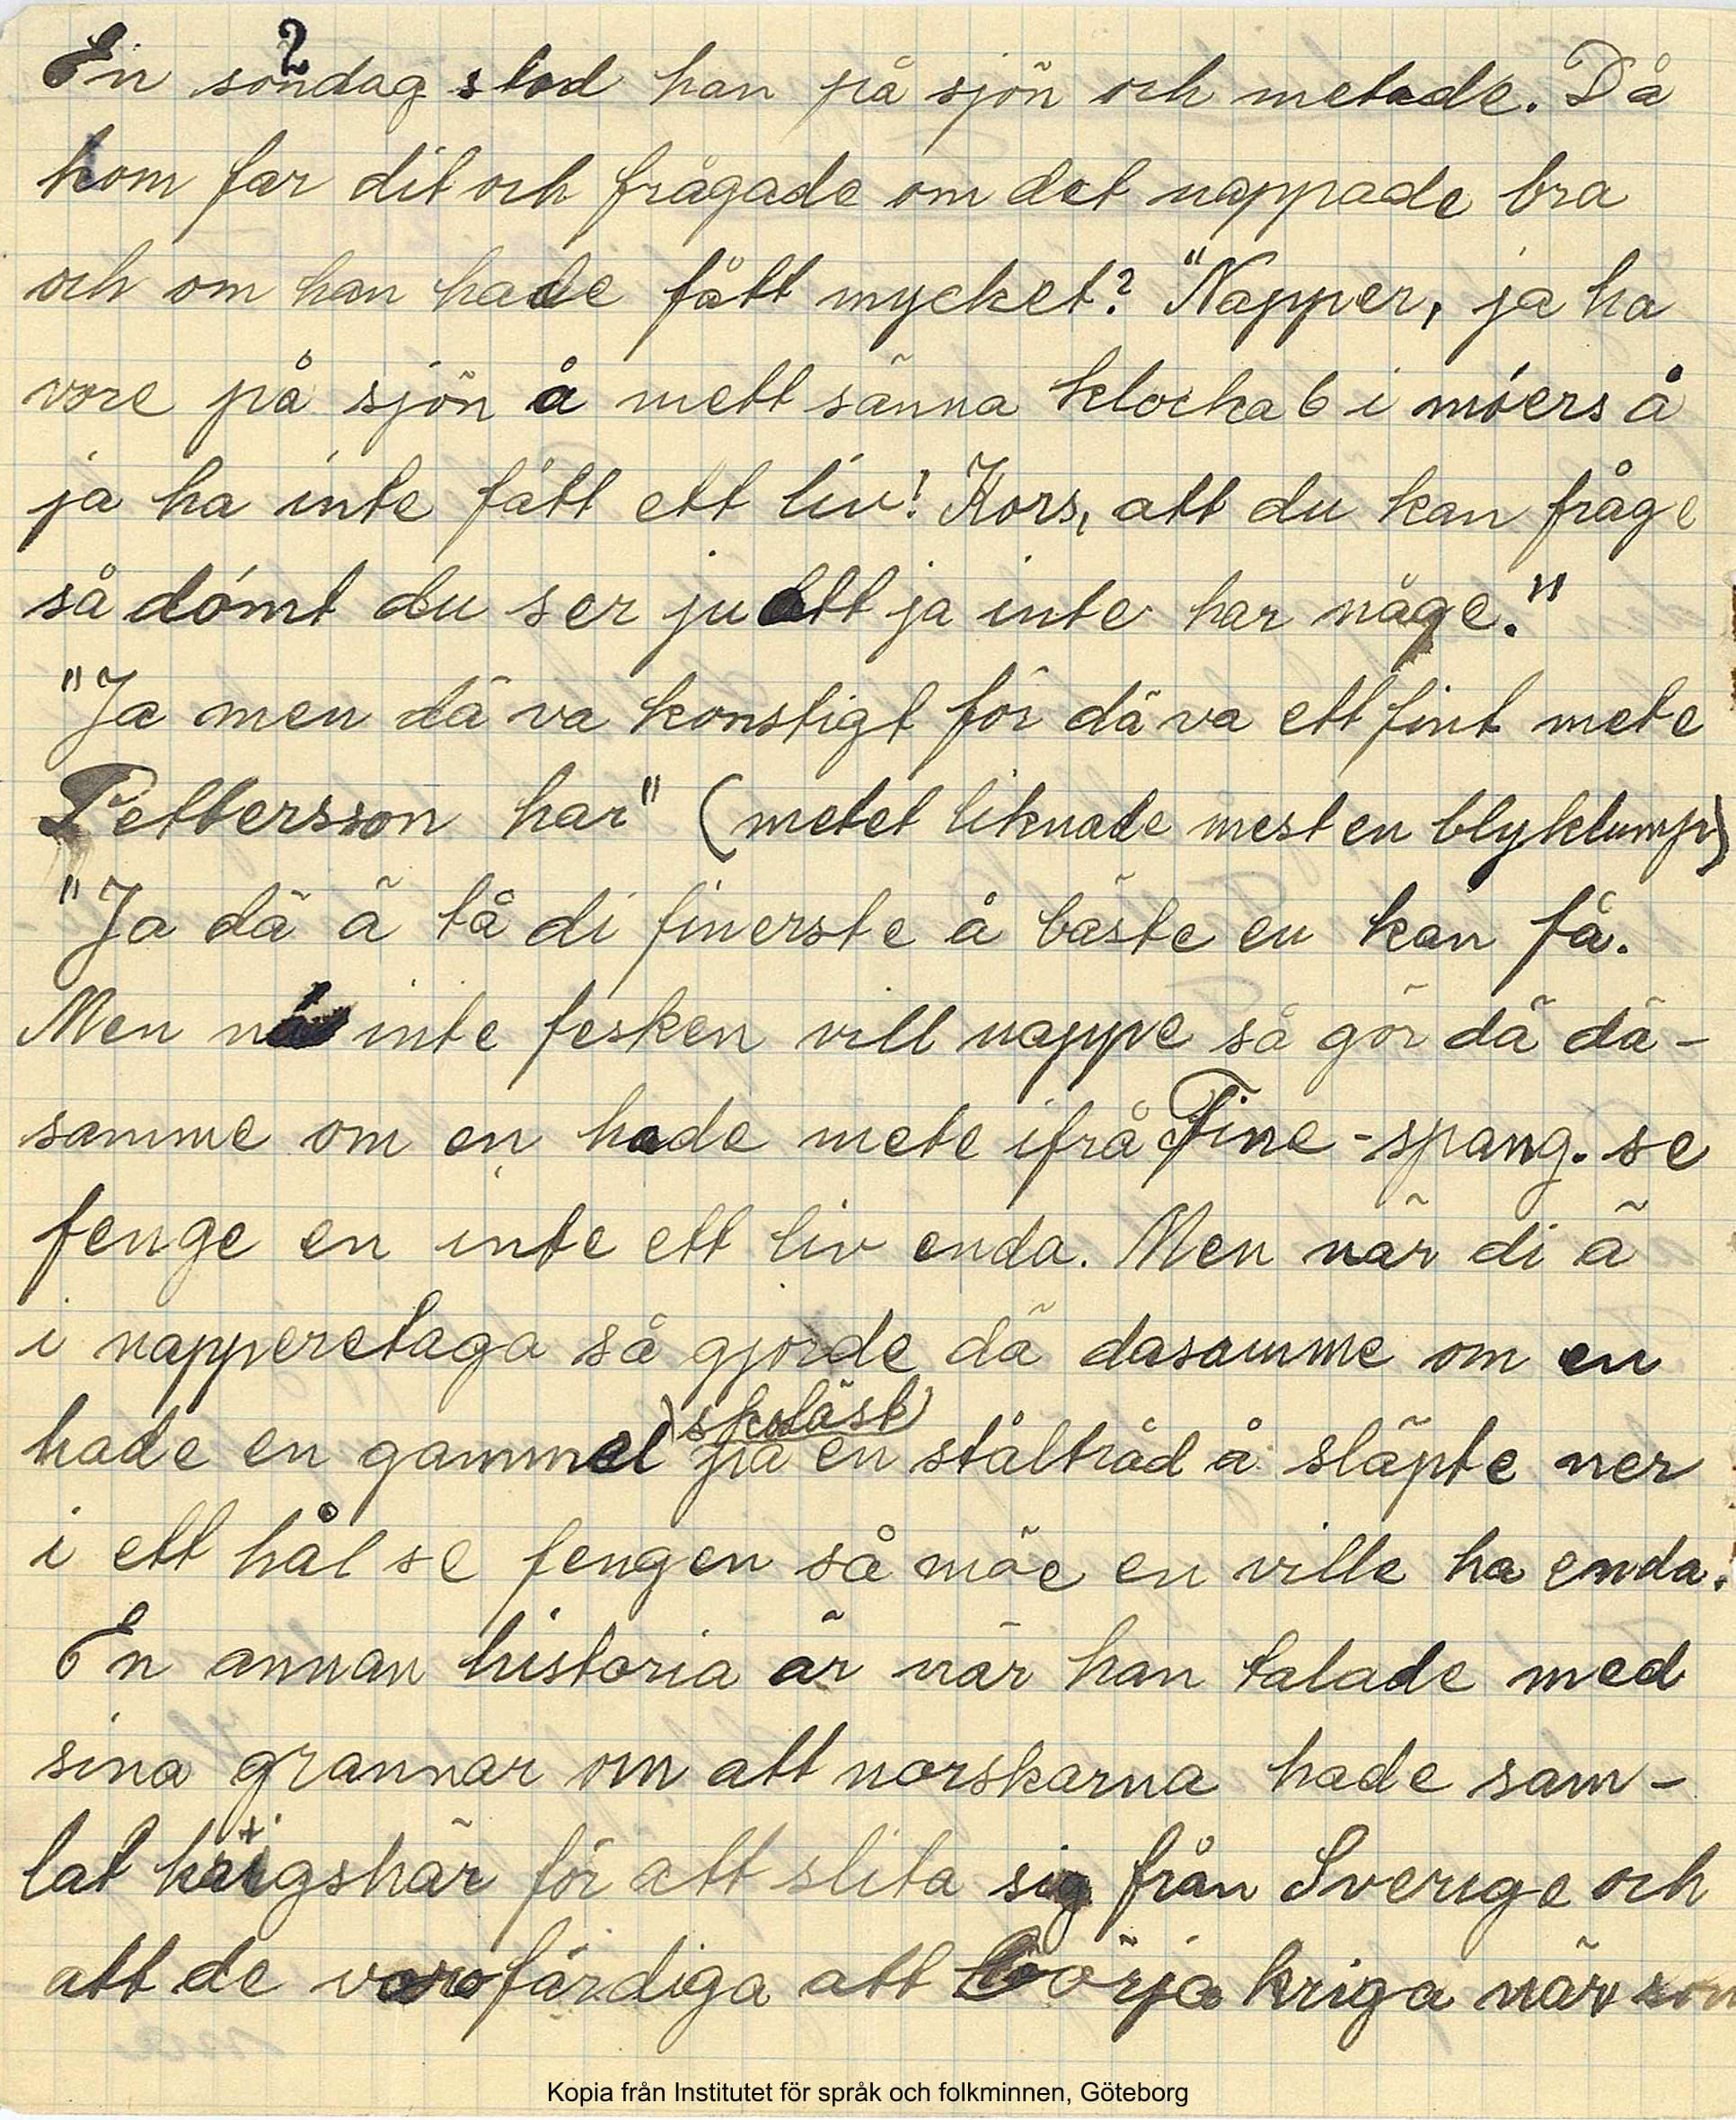 2
En söndag stod han på sjön och metade. Då
kom far dit och frågade om det nappade bra
och om han hade fått mycket? "Napper, ja ha
vore på sjön å mett sänna klocka 6 i móers å
ja ha inte fått ett liv! Kors, att du kan fråge
så dómt du ser ju att ja inte har någe."
"Ja men dä va konstigt för dä va ett fint mete
Pettersson har" (metet liknade mest en blyklump)
"Ja dä ä tå di finerste å bäste en kan få.
Men när inte fesken vill nappe så gör dä dä-
samme om en hade mete ifrå Fine-spang. se
fenge en inte ett liv enda. Men när di ä
i napperetaga så gjorde dä dasamme om en
hade en gammel (skoläst) på en ståltråd å släpte ner
i ett hål se fengen så möe en ville ha enda.
En annan historia är när han talade med
sina grannar om att norskarna hade sam-
lat krigshär för att slita sig från Sverige och
att de voro färdiga att börja kriga när som
Kopia från Institutet för språk och folkminnen, Göteborg